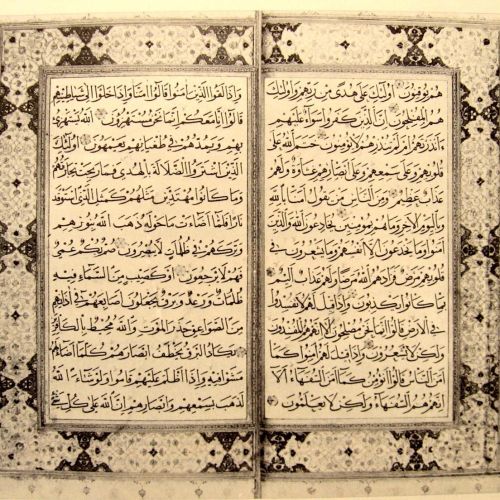 هم يوقنون اولئك على هدى من ربهم واولئك
هم المفلحون ان الذين كفروا سواء عليهم
ءانذرتهم ام لم تنذرهم لا يؤمنون ختم الله على
قلوبهم وعلى سمعهم وعلى ابصارهم غشاوة ولهم
عذاب عظيم ومن الناس من يقول امنا بالله
وباليوم الاخر وما هم بمؤمنين يخادعون الله والذين
امنوا وما يخدعون الا انفسهم وما يشعرون في
قلوبهم مرض فزادهم الله مرضا ولهم عذاب اليم
بما كانوا يكذبون واذا قيل لهم لا تفسدوا
في الارض قالوا انما نحن مصلحون الا انهم هم المفسدون
ولكن لا يشعرون واذا قيل لهم امنوا كما
امن الناس قالوا انؤمن كما امن السفهاء الا
انهم هم السفهاء ولكن لا يعلمون
واذا لقوا الذين امنوا قالوا امنا واذا خلوا الى شياطينهم
قالوا انا معكم انما نحن مستهزؤن الله يستهزئ
بهم ويمدهم في طغيانهم يعمهون اولئك
الذين اشتروا الضلالة بالهدى فما ربحت تجارتهم
وما كانوا مهتدين مثلهم كمثل الذي استوقد
نارا فلما اضاءت ما حوله ذهب الله بنورهم
وتركهم في ظلمات لا يبصرون صم بكم عمي
فهم لا يرجعون او كصيب من السماء فيه
ظلمات ورعد وبرق يجعلون اصابعهم في اذانهم
من الصواعق حذر الموت والله محيط بالكافرين
يكاد البرق يخطف ابصارهم كلما اضاء لهم
مشوا فيه واذا اظلم عليهم قاموا ولو شاء الله
لذهب بسمعهم وابصارهم ان الله على كل شيء